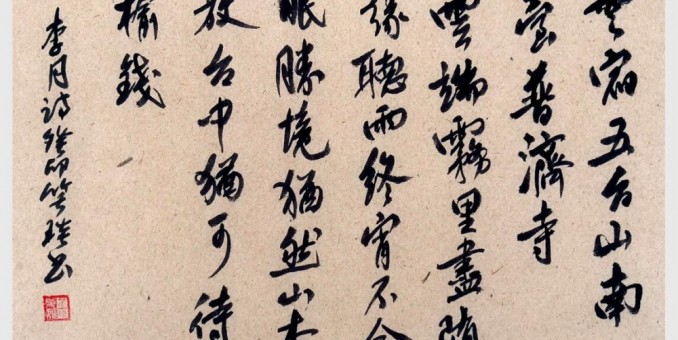 宿五台山南
台普濟寺
雲端霧里盡随
緣聽雨終宵不
眠勝境猶然山
放台中猶可待
榆錢
李月詩癸卯笑 书